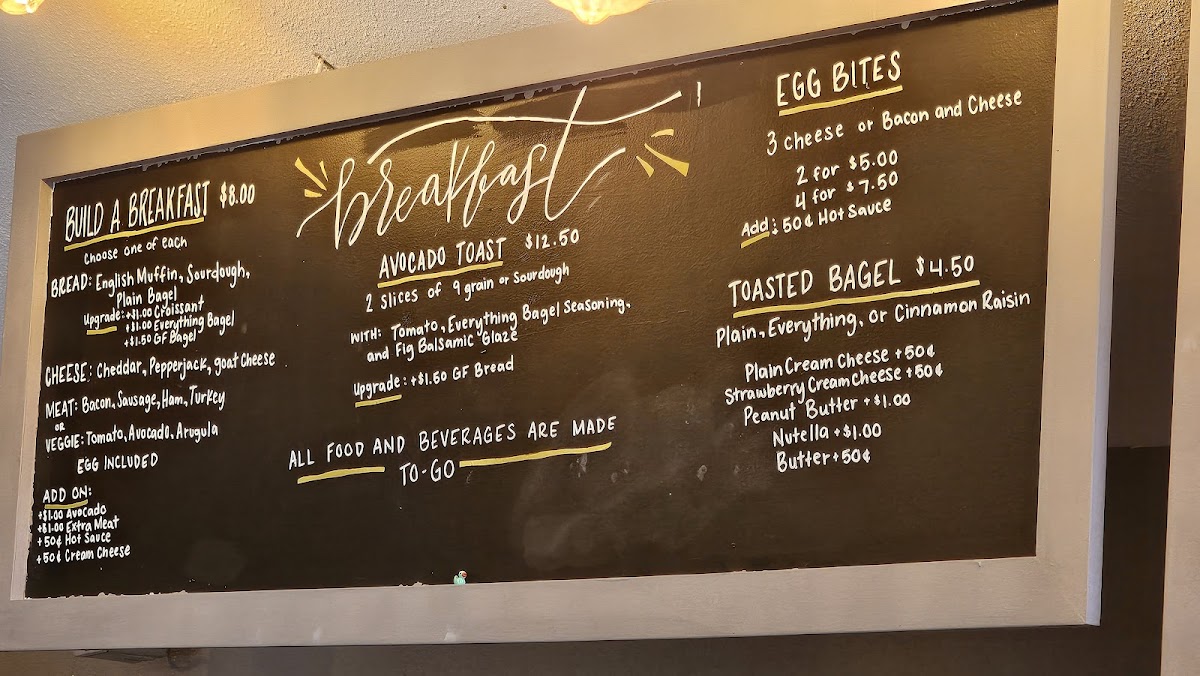 breakfast
BUILD A BREAKFAST $8.00
Choose one of each
BREAD: English Muffin, Sourdough,
Plain Bagel
Upgrade: +$1.00 Croissant
+$1.00 Everything Bagel
+$1.50 GF Bagel
CHEESE: Cheddar, Pepperjack, goat Cheese
MEAT: Bacon, Sausage, Ham, Turkey
OR
VEGGIE: Tomato, Avocado, Arugula
EGG INCLUDED
ADD ON:
+$1.00 Avocado
+$1.00 Extra Meat
+50¢ Hot Sauce
+50¢ Cream Cheese
AVOCADO TOAST $12.50
2 Slices of 9 grain or Sourdough
WITH: Tomato, Everything Bagel Seasoning,
and Fig Balsamic Glaze
Upgrade: +$1.50 GF Bread
ALL FOOD AND BEVERAGES ARE MADE
TO-GO
EGG BITES
3 cheese or Bacon and Cheese
2 for $5.00
4 for $7.50
Add: 50¢ Hot Sauce
TOASTED BAGEL $4.50
Plain, Everything, or Cinnamon Raisin
Plain Cream Cheese +50¢
Strawberry Cream Cheese +50¢
Peanut Butter +$1.00
Nutella +$1.00
Butter +50¢